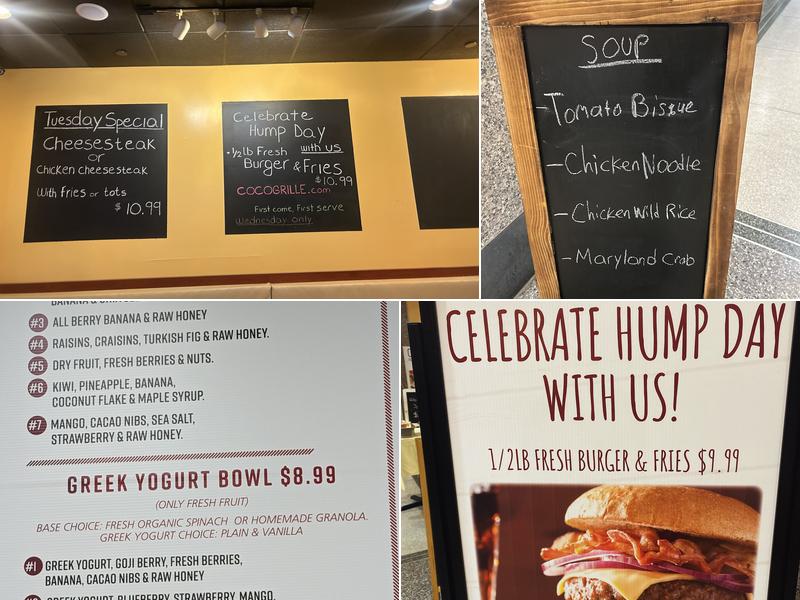 Tuesday Special
Cheesesteak
or
Chicken cheesesteak
With fries or tots
$10.99
Celebrate
Hump Day
with us
• 1/2 lb Fresh
Burger & Fries
$10.99
COCOGRILLE.com
First come, First serve
Wednesday only
SOUP
- Tomato Bisque
- Chicken Noodle
- Chicken Wild Rice
- Maryland Crab
#3 ALL BERRY BANANA & RAW HONEY
#4 RAISINS, CRAISINS, TURKISH FIG & RAW HONEY.
#5 DRY FRUIT, FRESH BERRIES & NUTS.
#6 KIWI, PINEAPPLE, BANANA,
COCONUT FLAKE & MAPLE SYRUP.
#7 MANGO, CACAO NIBS, SEA SALT,
STRAWBERRY & RAW HONEY.
GREEK YOGURT BOWL $8.99
(ONLY FRESH FRUIT)
BASE CHOICE: FRESH ORGANIC SPINACH OR HOMEMADE GRANOLA.
GREEK YOGURT CHOICE: PLAIN & VANILLA
#1 GREEK YOGURT, GOJI BERRY, FRESH BERRIES,
BANANA, CACAO NIBS & RAW HONEY
GREEK YOGURT, BLUEBERRY, STRAWBERRY, MANGO,
CELEBRATE HUMP DAY
WITH US!
1/2LB FRESH BURGER & FRIES $9.99